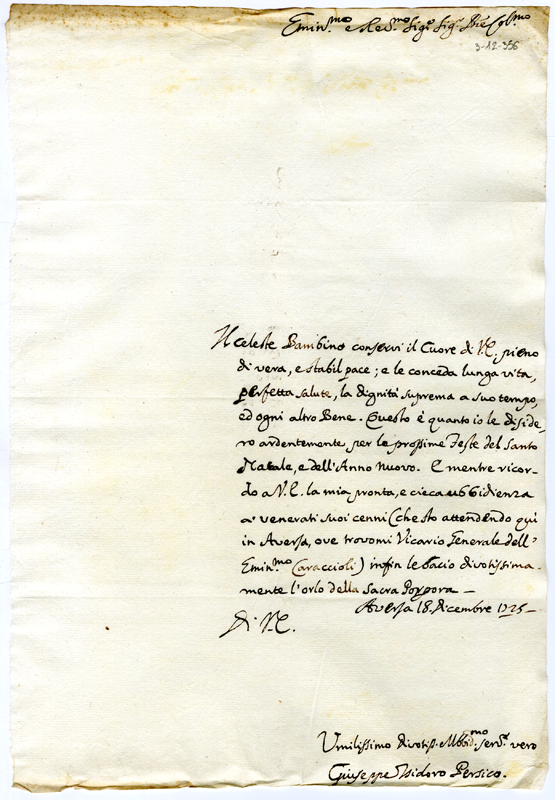 Emin.mo e Red.mo Sig.r Sig.r Pñe Col.mo
3-12-356
Il Celeste Bambino conservi il Cuore di V.E. pieno
di vera, e stabil pace; e le conceda lunga vita,
perfetta salute, la dignità suprema a suo tempo,
ed ogni altro Bene. Questo è quanto io le diside=
ro ardentemente per le prossime Feste del Santo
Natale, e dell'Anno nuovo. E mentre ricor=
do a V.E. la mia pronta, e cieca ubbidienza
a' venerati suoi cenni (che sto attendendo quì
in Aversa, ove trovomi Vicario Generale dell'
Emin.mo Caraccioli) infin le bacio divotissima=
mente l'orlo della Sacra Porpora —
Aversa 18. Dicembre 1725 —
Di V.E.
Umilissimo Divotiss. Obbid.mo Serv.e vero
Giuseppe Isidoro Persico.